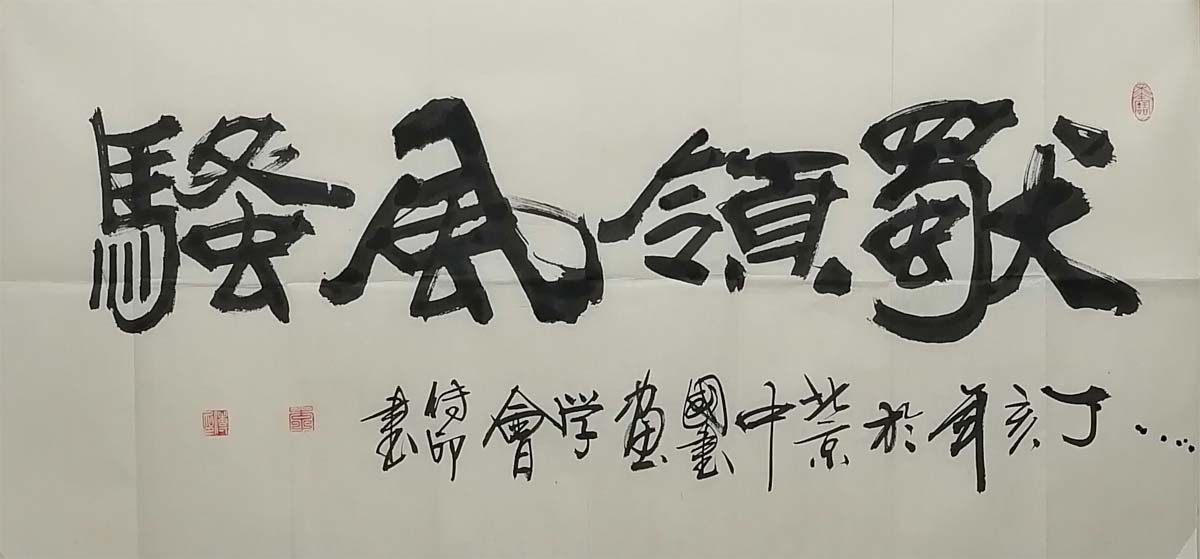 獨領風騷
丁亥年於北京中國書畫学會書